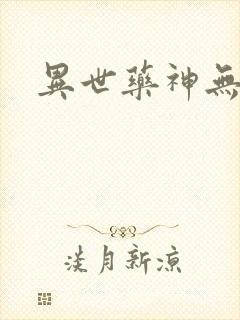 異世藥神無
淡月新涼